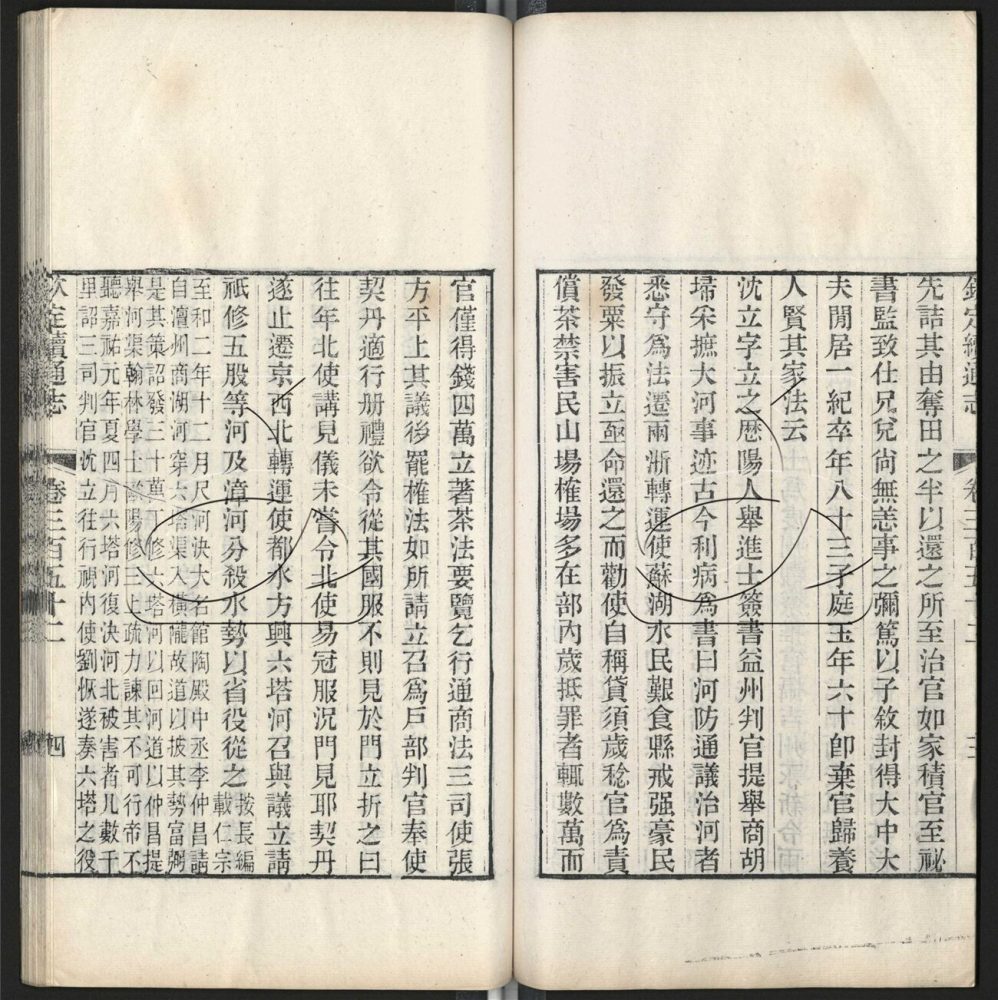 欽定續通志 卷三百五十二 三
先詰其由奪田之半以還之所至治官如家積官至祕
書監致仕兄兒尚無恙事之彌篤以子敘封得大中大
夫閒居一紀卒年八十三子庭玉年六十卽棄官歸養
人賢其家法云
沈立字立之歷陽人舉進士簽書益州判官提舉商胡
埽采摭大河事迹古今利病爲書曰河防通議治河者
悉守爲法遷兩浙轉運使蘇湖水民艱食縣戒强豪民
發粟以振立亟命還之而勸使自稱貸須歲稔官爲責
償茶禁害民山場榷場多在部內歲抵罪者輒數萬而
官僅得錢四萬立著茶法要覽乞行通商法三司使張
方平上其議後罷榷法如所請立召爲戶部判官奉使
契丹適行册禮欲令從其國服不則見於門立折之曰
往年北使講見儀未嘗令北使易冠服況門見耶契丹
遂止遷京西北轉運使都水方興六塔河召與議立請
祇修五股等河及漳河分殺水勢以省役從之
按長編
載仁宗
至和二年十二月尺河決大名館陶殿中丞李仲昌請
自澶州商湖河穿六塔渠入橫隴故道以披其勢富弼
是其策詔發三十萬丁修六塔河以回河道以仲昌提
舉河渠翰林學士歐陽修三上疏力諫其不可行帝不
聽嘉祐元年夏四月六塔河復決河北被害者凡數千
里詔三司判官沈立往行視內使劉恢遂奏六塔之役
欽定續通志 卷三百五十二 四